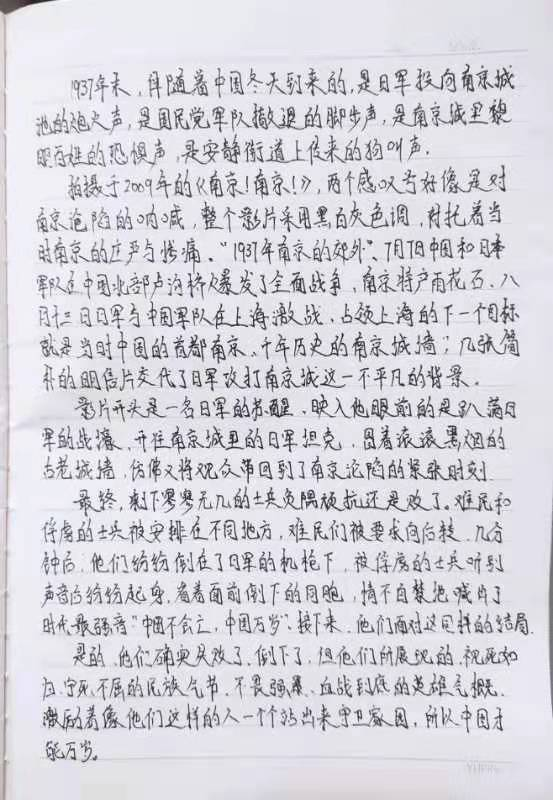 1937年末，伴随着中国冬天到来的，是日军投向南京城
池的炮火声，是国民党军队撤退的脚步声，是南京城里黎
民百姓的恐惧声，是安静街道上传来的狗叫声。
拍摄于2009年的《南京！南京！》，两个感叹号好像是对
南京沦陷的呐喊，整个影片采用黑白灰色调，衬托着当
时南京的庄严与惨痛。“1937年南京的郊外”、7月7日中国和日本
军队在中国北部卢沟桥爆发了全面战争，南京特产雨花石、八
月十三日日军与中国军队在上海激战，占领上海的下一个目标
就是当时中国的首都南京、千年历史的南京城墙；几张简
朴的明信片交代了日军攻打南京城这一不平凡的背景。
影片开头是一名日军的苏醒，映入他眼前的是趴满日
军的战壕，开往南京城里的日军坦克，冒着滚滚黑烟的
古老城墙，仿佛又将观众带回到了南京沦陷的紧张时刻。
最终，剩下寥寥无几的士兵负隅顽抗还是败了。难民和
俘虏的士兵被安排在不同地方，难民们被要求向后转，几分
钟后，他们纷纷倒在了日军的机枪下，被俘虏的士兵听到
声音后纷纷起身，看着面前倒下的同胞，情不自禁地喊出了
时代最强音“中国不会亡，中国万岁”，接下来，他们面对这同样的结局。
是的，他们确实失败了，倒下了，但他们所展现的，视死如
归，宁死不屈的民族气节，不畏强暴、血战到底的英雄气概，
激励着像他们这样的人一个个站出来守卫家园，所以中国才
能万岁。